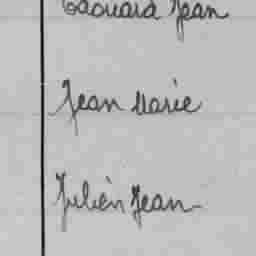 Edouard Jean
Jean Marie
Julien Jean